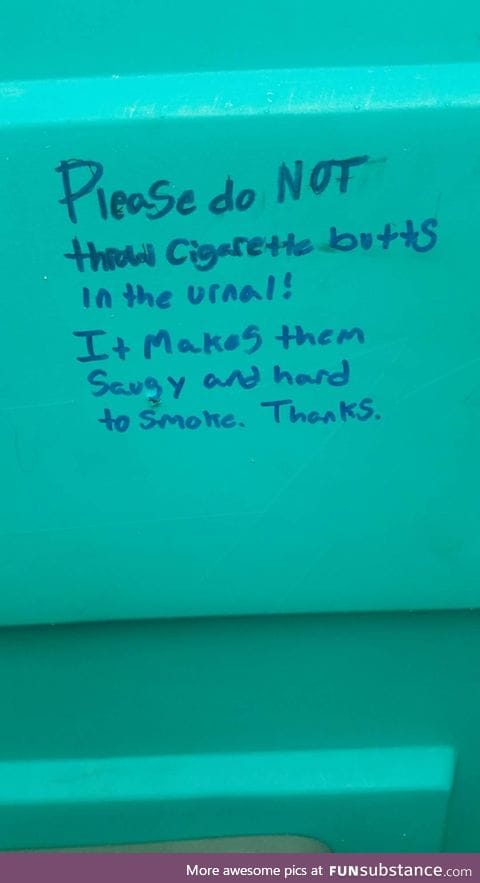 Please do NOT
throw Cigarette butts
in the urnal!
It Makes them
Saugy and hard
to smoke. Thanks.
More awesome pics at FUNsubstance.com